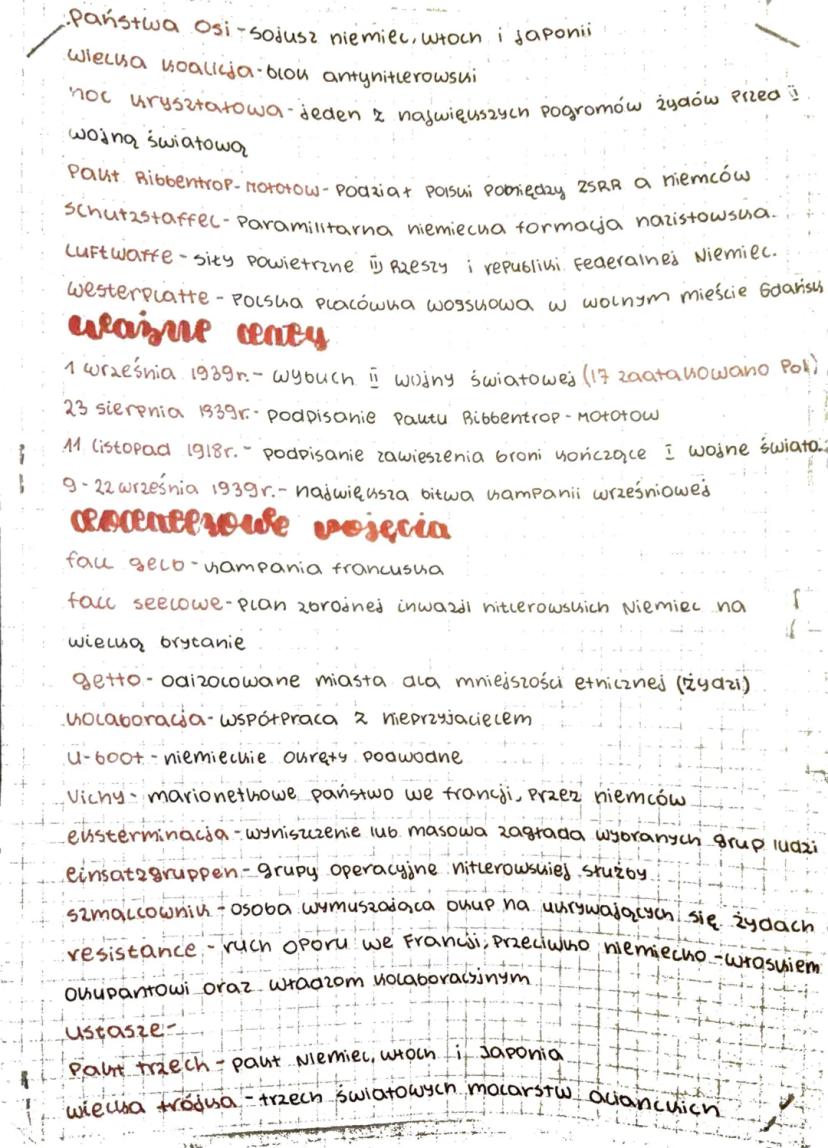 Państwa Osi - sojusz niemiec, włoch i Japonii
wielka koalicja - blok antyhitlerowski
noc kryształowa - jeden z największych pogromów żydów przed II
wojną światową
Pakt Ribbentrop - Mołotow - podział polski pomiędzy ZSRR a niemców
Schutzstaffel - paramilitarna niemiecka formacja nazistowska.
Luftwaffe - siły powietrzne III Rzeszy i republiki Federalnej Niemiec.
Westerplatte - polska placówka wojskowa w wolnym mieście Gdańsk
ważne daty
1 września 1939r. - wybuch II wojny światowej (17 zaatakowano Pol)
23 sierpnia 1939r. - podpisanie paktu Ribbentrop - Mołotow
11 listopad 1918r. - podpisanie zawieszenia broni kończące I wojne świato.
9 - 22 września 1939r. - największa bitwa kampanii wrześniowej
dodatkowe pojęcia
fall gelb - kampania francuska
fall seelowe - plan zbrojnej inwazji hitlerowskich Niemiec na
wielką brytanie
getto - odizolowane miasta dla mniejszości etnicznej (żydzi)
kolaboracja - współpraca z nieprzyjacielem
u-boot - niemieckie okręty podwodne
Vichy - marionetkowe państwo we francji, przez niemców
eksterminacja - wyniszczenie lub masowa zagłada wybranych grup ludzi
einsatzgruppen - grupy operacyjne hitlerowskiej służby
szmalcownik - osoba wymuszająca okup na ukrywających się żydach
resistance - ruch oporu we Francji, przeciwko niemiecko - włoskiem
okupantowi oraz władzom kolaboracyjnym
ustasze -
Pakt trzech - pakt Niemiec, włoch i Japonia
wielka trójka - trzech światowych mocarstw alianckich